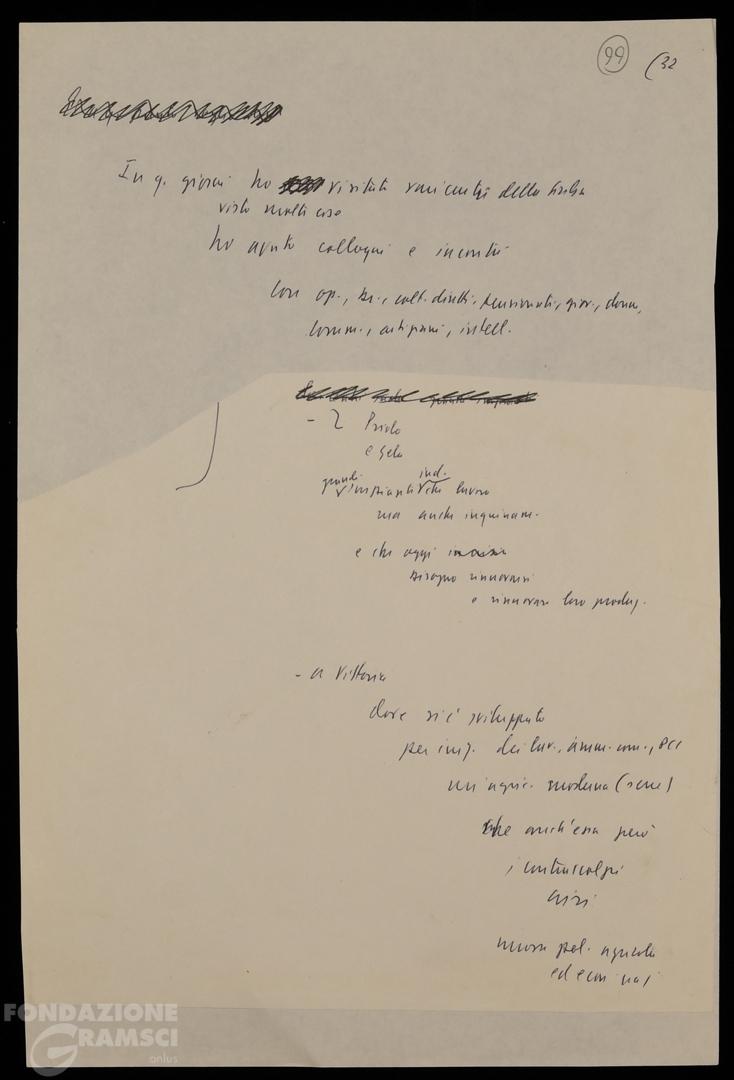 99 (32
In q. giorni ho visitato vari centri della Sicilia
visto molte cose
ho avuto colloqui e incontri
con op., br., colt. diretti, pensionati, giov., donne,
comm., artigiani, intell.
- Priolo
e Gela
grandi ind.
impianti che lavoro
ma anche inquinam.
e che oggi
bisogno rinnovarsi
e rinnovare loro produz.
- a Vittoria
dove si è sviluppata
per imz. dei lav., amm. com., PCI
un'agric. moderna (serre)
che anch'essa però
i contraccolpi
crisi
nuova pol. agricola
ed econ naz
FONDAZIONE
GRAMSCI
onlus